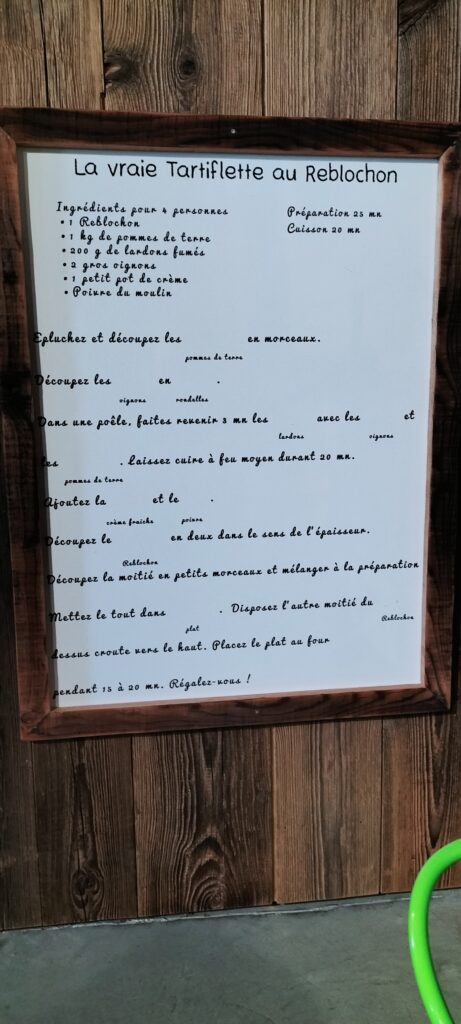 La vraie Tartiflette au Reblochon
Ingrédients pour 4 personnes
• 1 Reblochon
• 1 kg de pommes de terre
• 200 g de lardons fumés
• 2 gros oignons
• 1 petit pot de crème
• Poivre du moulin
Préparation 25 mn
Cuisson 20 mn
Epluchez et découpez les en morceaux.
pommes de terre
Découpez les en .
oignons rondelles
Dans une poêle, faites revenir 3 mn les avec les et
lardons oignons
les . Laissez cuire à feu moyen durant 20 mn.
pommes de terre
Ajoutez la et le .
crème fraiche poivre
Découpez le en deux dans le sens de l'épaisseur.
Reblochon
Découpez la moitié en petits morceaux et mélanger à la préparation
Mettez le tout dans . Disposez l'autre moitié du
plat Reblochon
dessus croute vers le haut. Placez le plat au four
pendant 15 à 20 mn. Régalez-vous !